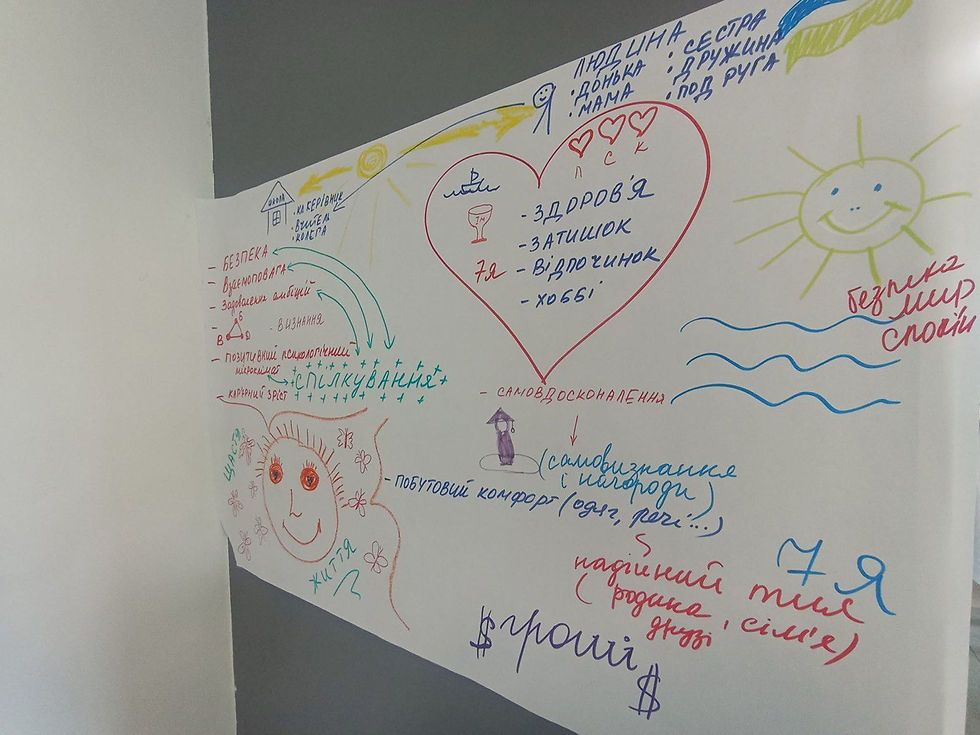 ЛЮДИНА
• ДОНЬКА
• МАМА
• СЕСТРА
• ДРУЖИНА
• ПОДРУГА
ШКОЛА
• КЕРІВНИК
• ВЧИТЕЛЬ
• КОЛЕГА
- БЕЗПЕКА
- ВЗАЄМОПОВАГА
- Задоволення амбіцій
- Б В D - ВИЗНАННЯ
- ПОЗИТИВНИЙ ПСИХОЛОГІЧНИЙ
МІКРОКЛІМАТ
- КАР'ЄРНИЙ ЗРІСТ
СПІЛКУВАННЯ
П С К
7Я
- ЗДОРОВ'Я
- ЗАТИШОК
- ВІДПОЧИНОК
- ХОББІ
безпека
мир
спокій
- САМОВДОСКОНАЛЕННЯ
(самовизнання
і нагороди)
- ПОБУТОВИЙ КОМФОРТ (одяг, речі...)
ЩАСТЯ
ЖИТТЯ
7 Я
надійний тил
(родина, сім'я)
друзі
$ гроші $